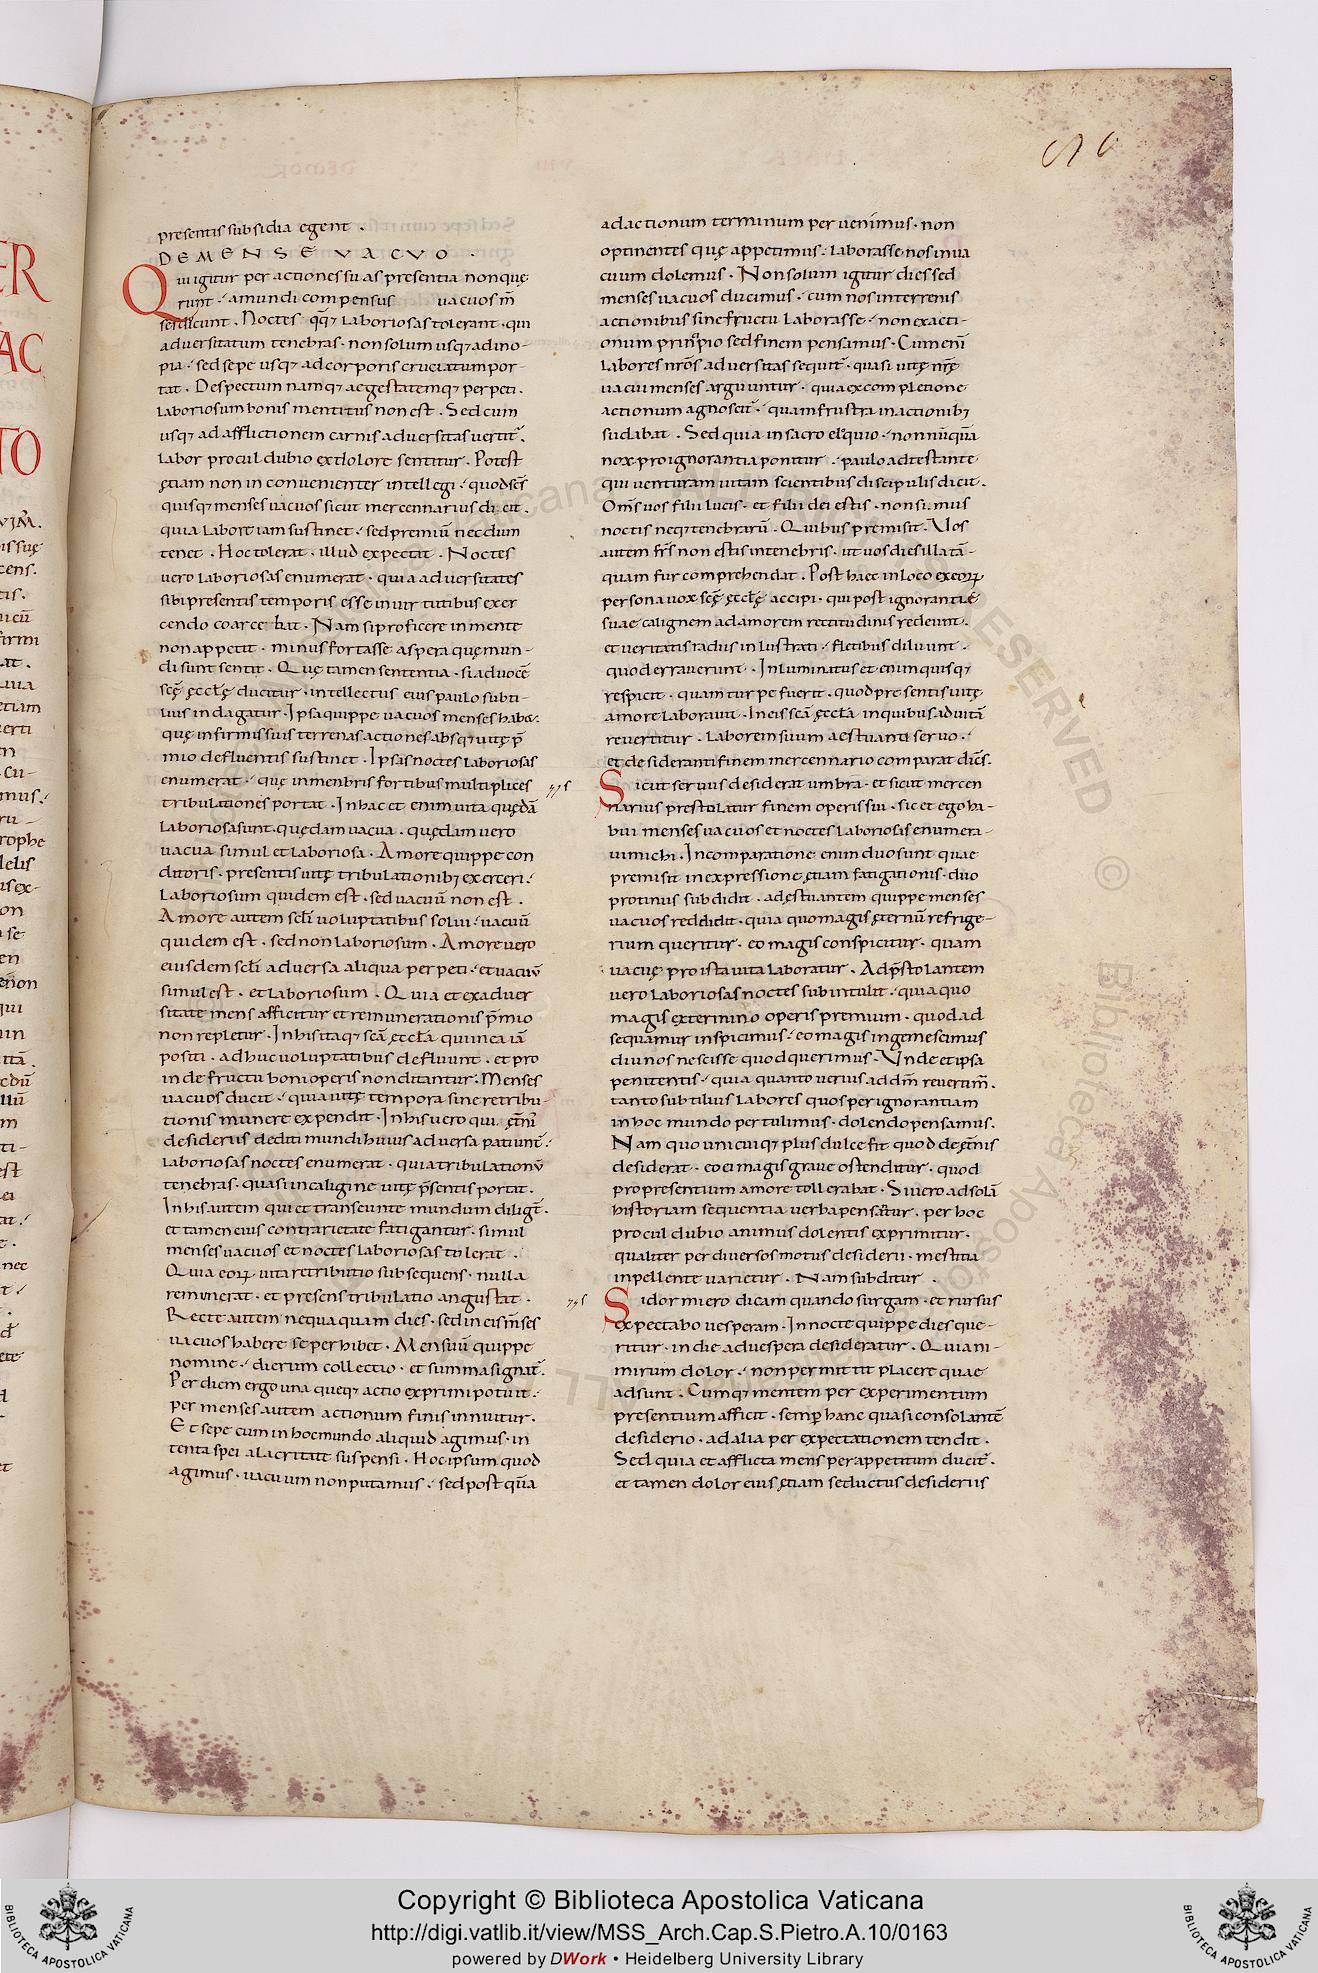 presentis subsidia egent .
DE MENSE VACUO .
Qui igitur per actiones suas presentia non quę
runt ·́ a mundi compensus uacuos m̄
ses dicunt . Noctes qq; laboriosas tolerant · qui
aduersitatum tenebras · non solum usq; ad ino-
pia ·́ sed sepe usq; ad corporis cruciatum por-
tat . Despectum namq; ac gestatemq; perpeti ·
laboriosum bonis mentitus non est . Sed cum
usq; ad afflictionem carnis aduersitas uertit̃ .
labor procul dubio ex dolore sentitur . Potest
ętiam non inconuenienter intellegi ·́ quod sc̄s
quisq; menses uacuos sicut mercennarius dicit .
quia labore iam sustinet ·́ sed premiū necdum
tenet . Hoc tolerat · illud expectat . Noctes
uero laboriosas enumerat · quia aduersitates
sibi presentis temporis esse in uirtutibus exer
cendo coarcebat . Nam si proficere in mente
non appetit · minus fortasse aspera quę mun-
di sunt sentit . Quę tamen sententia · si ad uocē
scę ęcclę ducitur · intellectus eius paulo subti-
lius indagatur . Ipsa quippe uacuos menses habet
quę infirmis suis terrenas actiones absq; uitę p̄
mio defluentis sustinet . Ipsas noctes laboriosas
enumerat ·́ quę in menbris fortibus multiplices
tribulationes portat . In hac et enim uita quędā
laboriosa sunt · quędam uacua · quędam uero
uacua simul et laboriosa . Amore quippe con
ditoris · presentis uitę tribulationib; exerceri ·́
laboriosum quidem est · sed uacuū non est .
Amore autem scłi uoluptatibus solui ·́ uacuū
quidem est · sed non laboriosum . Amore uero
eiusdem scłi aduersa aliqua perpeti ·́ et uacuū
simul est · et laboriosum . Quia et ex aduer
sitate mens afficitur et remunerationis p̄mio
non repletur . In his itaq; scā ęcclā qui in ea iā
positi · adhuc uoluptatibus defluunt · et pro
inde fructu boni operis non ditantur ·́ Menses
uacuos ducit ·́ quia uitę tempora sine retribu-
tionis munere expendit . In his uero qui ęt̄ni
desideriis dediti mundi huius aduersa patiunt̄ ·́
laboriosas noctes enumerat · quia tribulationū
tenebras · quasi in caligine uitę p̄sentis portat .
In his autem qui et transeunte mundum diligt̄ .
et tamen eius contrarietate fatigantur · simul
menses uacuos et noctes laboriosas tolerat .
Quia eorꝝ uita retributio subsequens · nulla
remunerat · et presens tribulatio angustat .
Recte autem nequaquam dies · sed in eis m̄ses
uacuos habere se perhibet . Mensuū quippe
nomine ·́ dierum collectio · et summa signat̄ .
Per diem ergo una queq; actio exprimi potuit ·́
per menses autem actionum finis innuitur .
Et sepe cum in hoc mundo aliquid agimus · in
tenta spei alacritate suspensi · Hoc ipsum quod
agimus · uacuum non putamus ·́ sed post quā
ad actionum terminum peruenimus · non
optinentes quę appetimus ·́ laborasse nos in ua
cuum dolemus . Non solum igitur dies sed
menses uacuos ducimus ·́ cum nos in terrenis
actionibus sine fructu laborasse ·́ non ex acti-
onum principio sed finem pensamus . Cum eni
labores nr̄os aduersitas sequit̄ · quasi uitę nr̄ę
uacui menses arguuntur · quia ex completione
actionum agnoscit̄ ·́ quam frustra in actionib;
sudabat . Sed quia in sacro eloquio · non nūquā
nox pro ignorantia ponitur ·́ paulo adtestante
qui uenturam uitam scientibus discipulis dicit .
Om̄s uos filii lucis · et filii dei estis · non sumus
noctis neq; tenebrarū . Quibus premisit . Uos
autem fr̄s non estis in tenebris · ut uos dies illa tā-
quam fur comprehendat . Post haec in loco ex eorꝝ
persona uox scę ęcclę accipi · qui post ignorantię
suae calignem ad amorem rectitudinis redeunt .
et ueritatis radiis inlustrati ·́ fletibus diluunt ·
quod errauerunt . Inluminatus et enim quisq;
respicit · quam turpe fuerit · quod presentis uitę
amore laborauit . In eis scā ęcclā in quibus ad uitā
reuertitur . laborem suum aestuanti seruo ·
et desideranti finem mercennario comparat dicēs .
Sicut seruus desiderat umbra · et sicut mercen
narius prestolatur finem operis sui · sic et ego ha-
bui menses uacuos et noctes laboriosas enumera-
ui michi . In comparatione enim duo sunt quae
premisit in expressione ętiam fatigationis · duo
protinus subdidit . adęstuantem quippe menses
uacuos reddidit · quia quo magis ęternū refrige-
rium queritur · eo magis conspicitur · quam
uacuę pro ista uita laboratur . Ad p̄stolantem
uero laboriosas noctes subintulit · quia quo
magis ex termino operis premium · quod ad
sequamur inspicimus ·́ eo magis ingemescimus
diu nos nescisse quod querimus . Unde et ipsa
penitentis ·́ quia quanto uerius ad dm̄ reuertim̄ .
tanto subtilius labores quos per ignorantiam
in hoc mundo pertulimus · dolendo pensamus .
Nam quo unicuiq; plus dulce fit quod de ęt̄nis
desiderat · eo ei magis graue ostenditur · quod
pro presentium amore tollerabat . Si uero ad solā
historiam sequentia uerba pensatur · per hoc
procul dubio animus dolentis exprimitur ·
qualiter per diuersos motus desiderii · mestitia
inpellente uarietur . Nam subditur .
Si dormiero dicam quando surgam · et rursus
expectabo uesperam . In nocte quippe dies que-
ritur · in die ad uespera desideratur . Quia ni-
mirum dolor ·́ non permittit placere quae
adsunt . Cumq; mentem per experimentum
presentium afficit · semp hanc quasi consolante
desiderio · ad alia per expectationem tendit .
Sed quia et afflicta mens per appetitum ducit̄ .
et tamen dolor eius ętiam seductus desideriis
Copyright © Biblioteca Apostolica Vaticana
http://digi.vatlib.it/view/MSS_Arch.Cap.S.Pietro.A.10/0163
powered by DWork • Heidelberg University Library
BIBLIOTECA APOSTOLICA VATICANA
BIBLIOTECA APOSTOLICA VATICANA